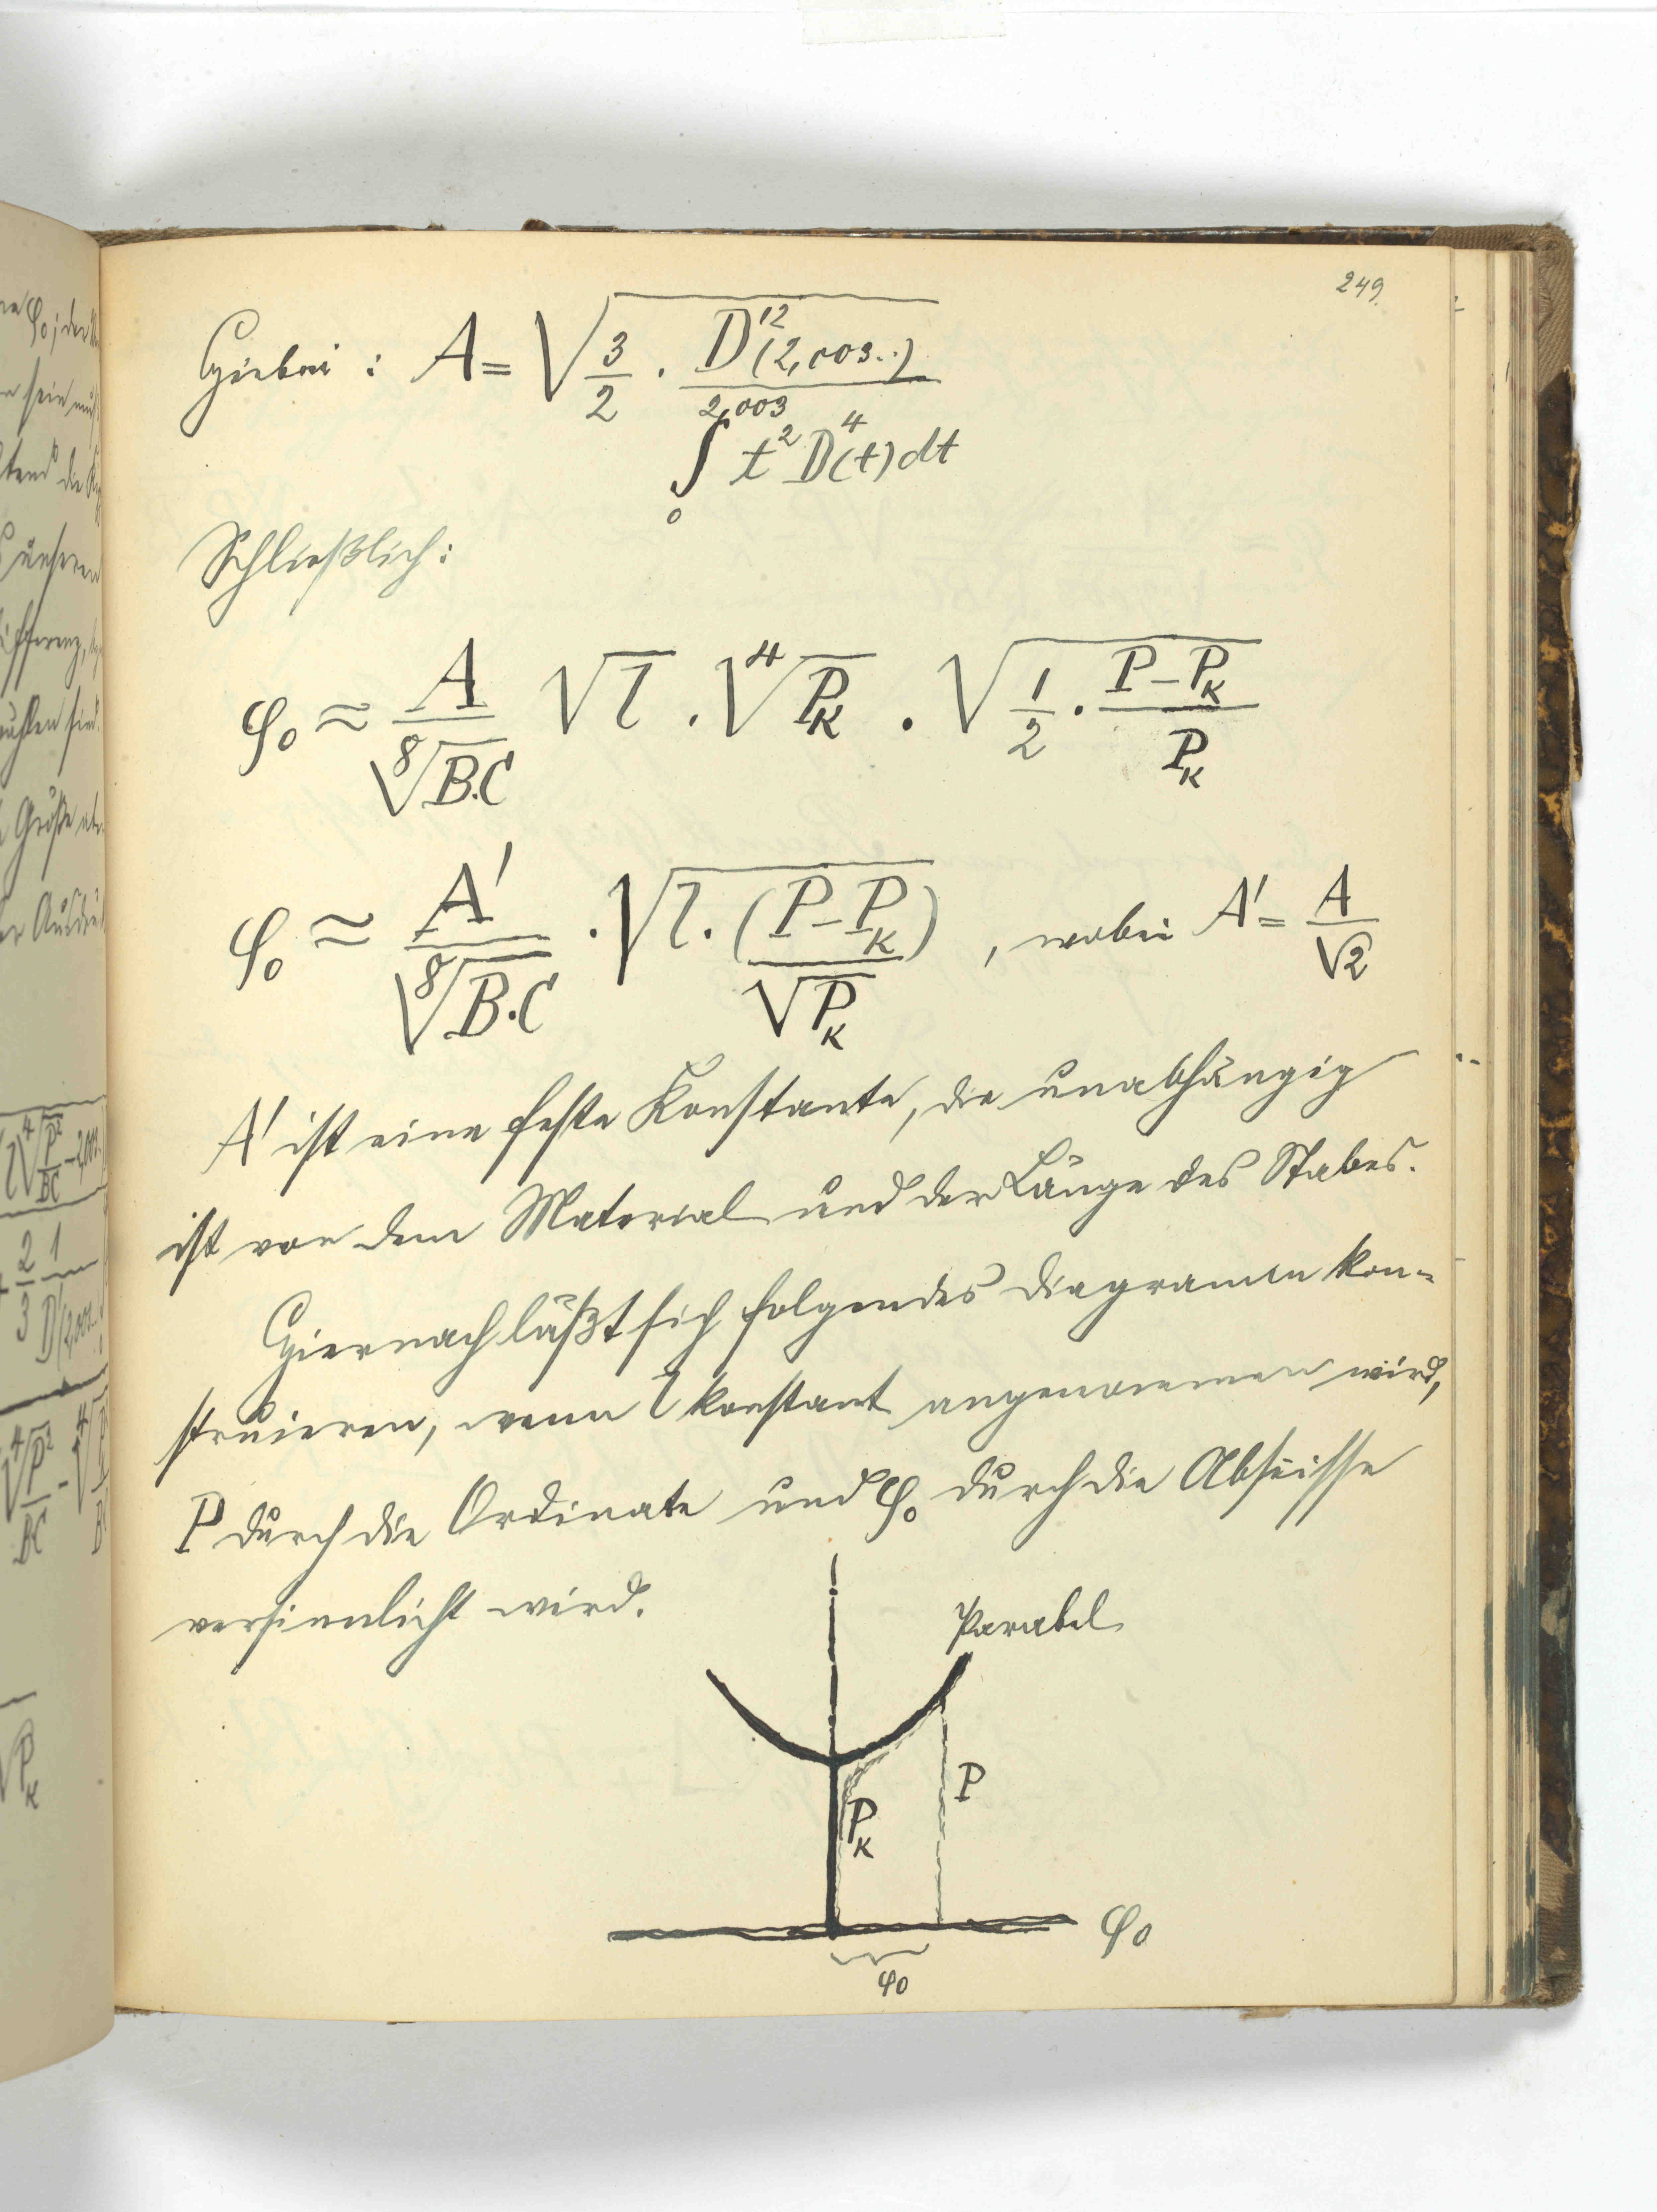 249.
Hiebei : A = √(3/2 · D'²(2,003..) / ∫₀^2,003 t² D⁴(t) dt)
Schließlich:
φ₀ ≈ A/⁸√(B.C) √l · ⁴√P_K · √(1/2 · (P-P_K)/P_K)
φ₀ ≈ A'/⁸√(B·C) · √(l · (P-P_K)/√P_K) , wobei A' = A/√2
A' ist eine feste Konstante, die unabhängig
ist von dem Material und der Länge des Stabes.
Hiernach läßt sich folgendes Diagramm kon=
struieren, wenn l konstant angenommen wird,
P durch die Ordinate und φ₀ durch die Abscisse
versinnlicht wird.
Parabel
P
P_K
φ₀
φ₀